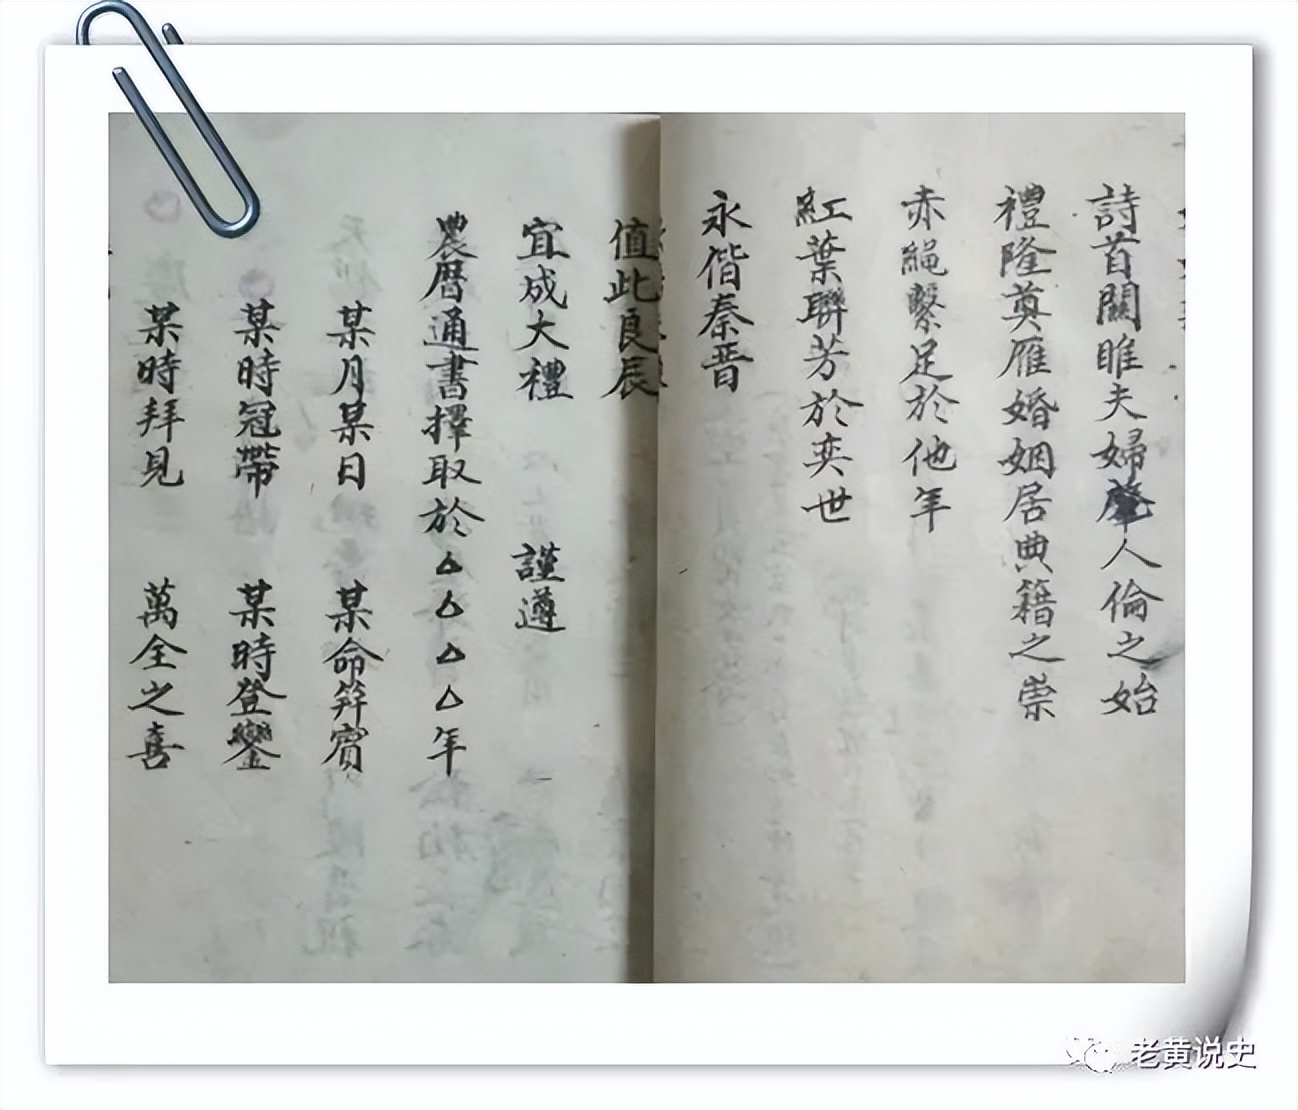 詩首關雎夫婦肇人倫之始
禮隆奠雁婚姻居典籍之崇
赤繩繫足於他年
紅葉聯芳於奕世
永偕秦晋
值此良辰
宜成大禮 謹遵
農曆通書擇取於△△△△年
某月某日 某命笄賓
某時冠帶 某時登鑾
某時拜見 萬全之喜
老黄说史